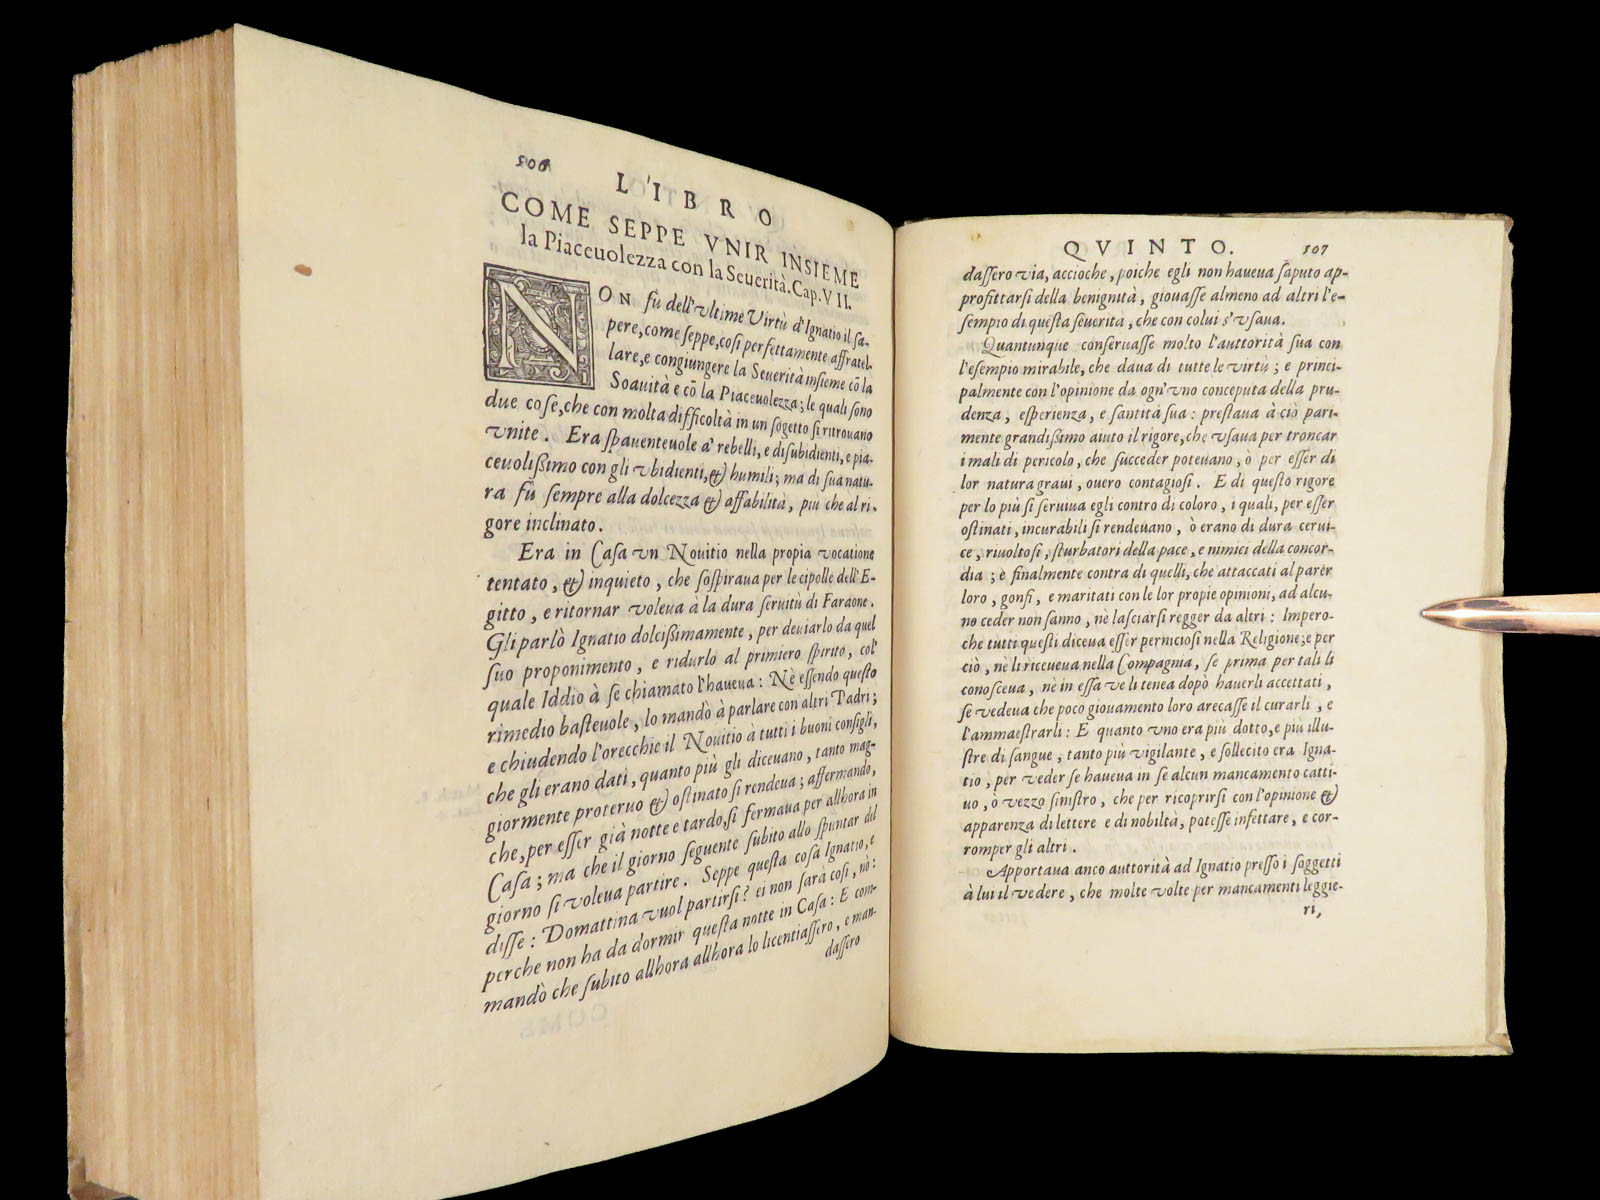 506
LIBRO
COME SEPPE VNIR INSIEME
la Piaceuolezza con la Seuerità. Cap. VII.
NON fù dell'vltime Virtù d'Ignatio il sa-
pere, come seppe, così perfettamente affratel-
lare, e congiungere la Seuerità insieme cō la
Soauità e cō la Piaceuolezza; le quali sono
due cose, che con molta difficoltà in un sogetto si ritrouano
vnite. Era spauenteuole a' rebelli, e disubidienti, e pia-
ceuolissimo con gli vbidienti, & humili; ma di sua natu-
ra fù sempre alla dolcezza & affabilità, più che al ri-
gore inclinato.
Era in Casa vn Nouitio nella propia vocatione
tentato, & inquieto, che sospiraua per le cipolle dell'E-
gitto, e ritornar voleua à la dura seruitù di Faraone.
Gli parlò Ignatio dolcissimamente, per deuiarlo da quel
suo proponimento, e ridurlo al primiero spirito, col'
quale Iddio à se chiamato l'haueua: Nè essendo questo
rimedio basteuole, lo mandò à parlare con altri Padri;
e chiudendo l'orecchie il Nouitio à tutti i buoni consigli,
che gli erano dati, quanto più gli diceuano, tanto mag-
giormente proteruo & ostinato si rendeua; affermando,
che, per esser già notte e tardo, si fermaua per allhora in
Casa; ma che il giorno seguente subito allo spuntar del
giorno si voleua partire. Seppe questa cosa Ignatio, e
disse: Domattina vuol partirsi? ei non sarà così, nò:
perche non ha da dormir questa notte in Casa: E com-
mandò che subito allhora allhora lo licentiassero, e man-
dassero
QVINTO. 507
dassero via, accioche, poiche egli non haueua saputo ap-
profittarsi della benignità, giouasse almeno ad altri l'e-
sempio di questa seuerità, che con colui s'vsaua.
Quantunque conseruasse molto l'auttorità sua con
l'esempio mirabile, che daua di tutte le virtù; e princi-
palmente con l'opinione da ogn'vno conceputa della pru-
denza, esperienza, e santità sua: prestaua à ciò pari-
mente grandissimo aiuto il rigore, che vsaua per troncar
i mali di pericolo, che succeder poteuano, ò per esser di
lor natura graui, ouero contagiosi. E di questo rigore
per lo più si seruiua egli contro di coloro, i quali, per esser
ostinati, incurabili si rendeuano, ò erano di dura cerui-
ce, riuoltosi, sturbatori della pace, e nimici della concor-
dia; e finalmente contra di quelli, che attaccati al parer
loro, gonfi, e maritati con le lor propie opinioni, ad alcu-
no ceder non sanno, nè lasciarsi regger da altri: Impero-
che tutti questi diceua esser perniciosi nella Religione; e per
ciò, nè li riceueua nella Compagnia, se prima per tali li
conosceua, nè in essa ve li tenea dopò hauerli accettati,
se vedeua che poco giouamento loro arecasse il curarli, e
l'ammaestrarli: E quanto vno era più dotto, e più illu-
stre di sangue, tanto più vigilante, e sollecito era Igna-
tio, per veder se haueua in se alcun mancamento catti-
uo, ò vezzo sinistro, che per ricoprirsi con l'opinione &
apparenza di lettere e di nobiltà, potesse infettare, e cor-
romper gli altri.
Apportaua anco auttorità ad Ignatio presso i soggetti
à lui il vedere, che molte volte per mancamenti leggie-
ri,